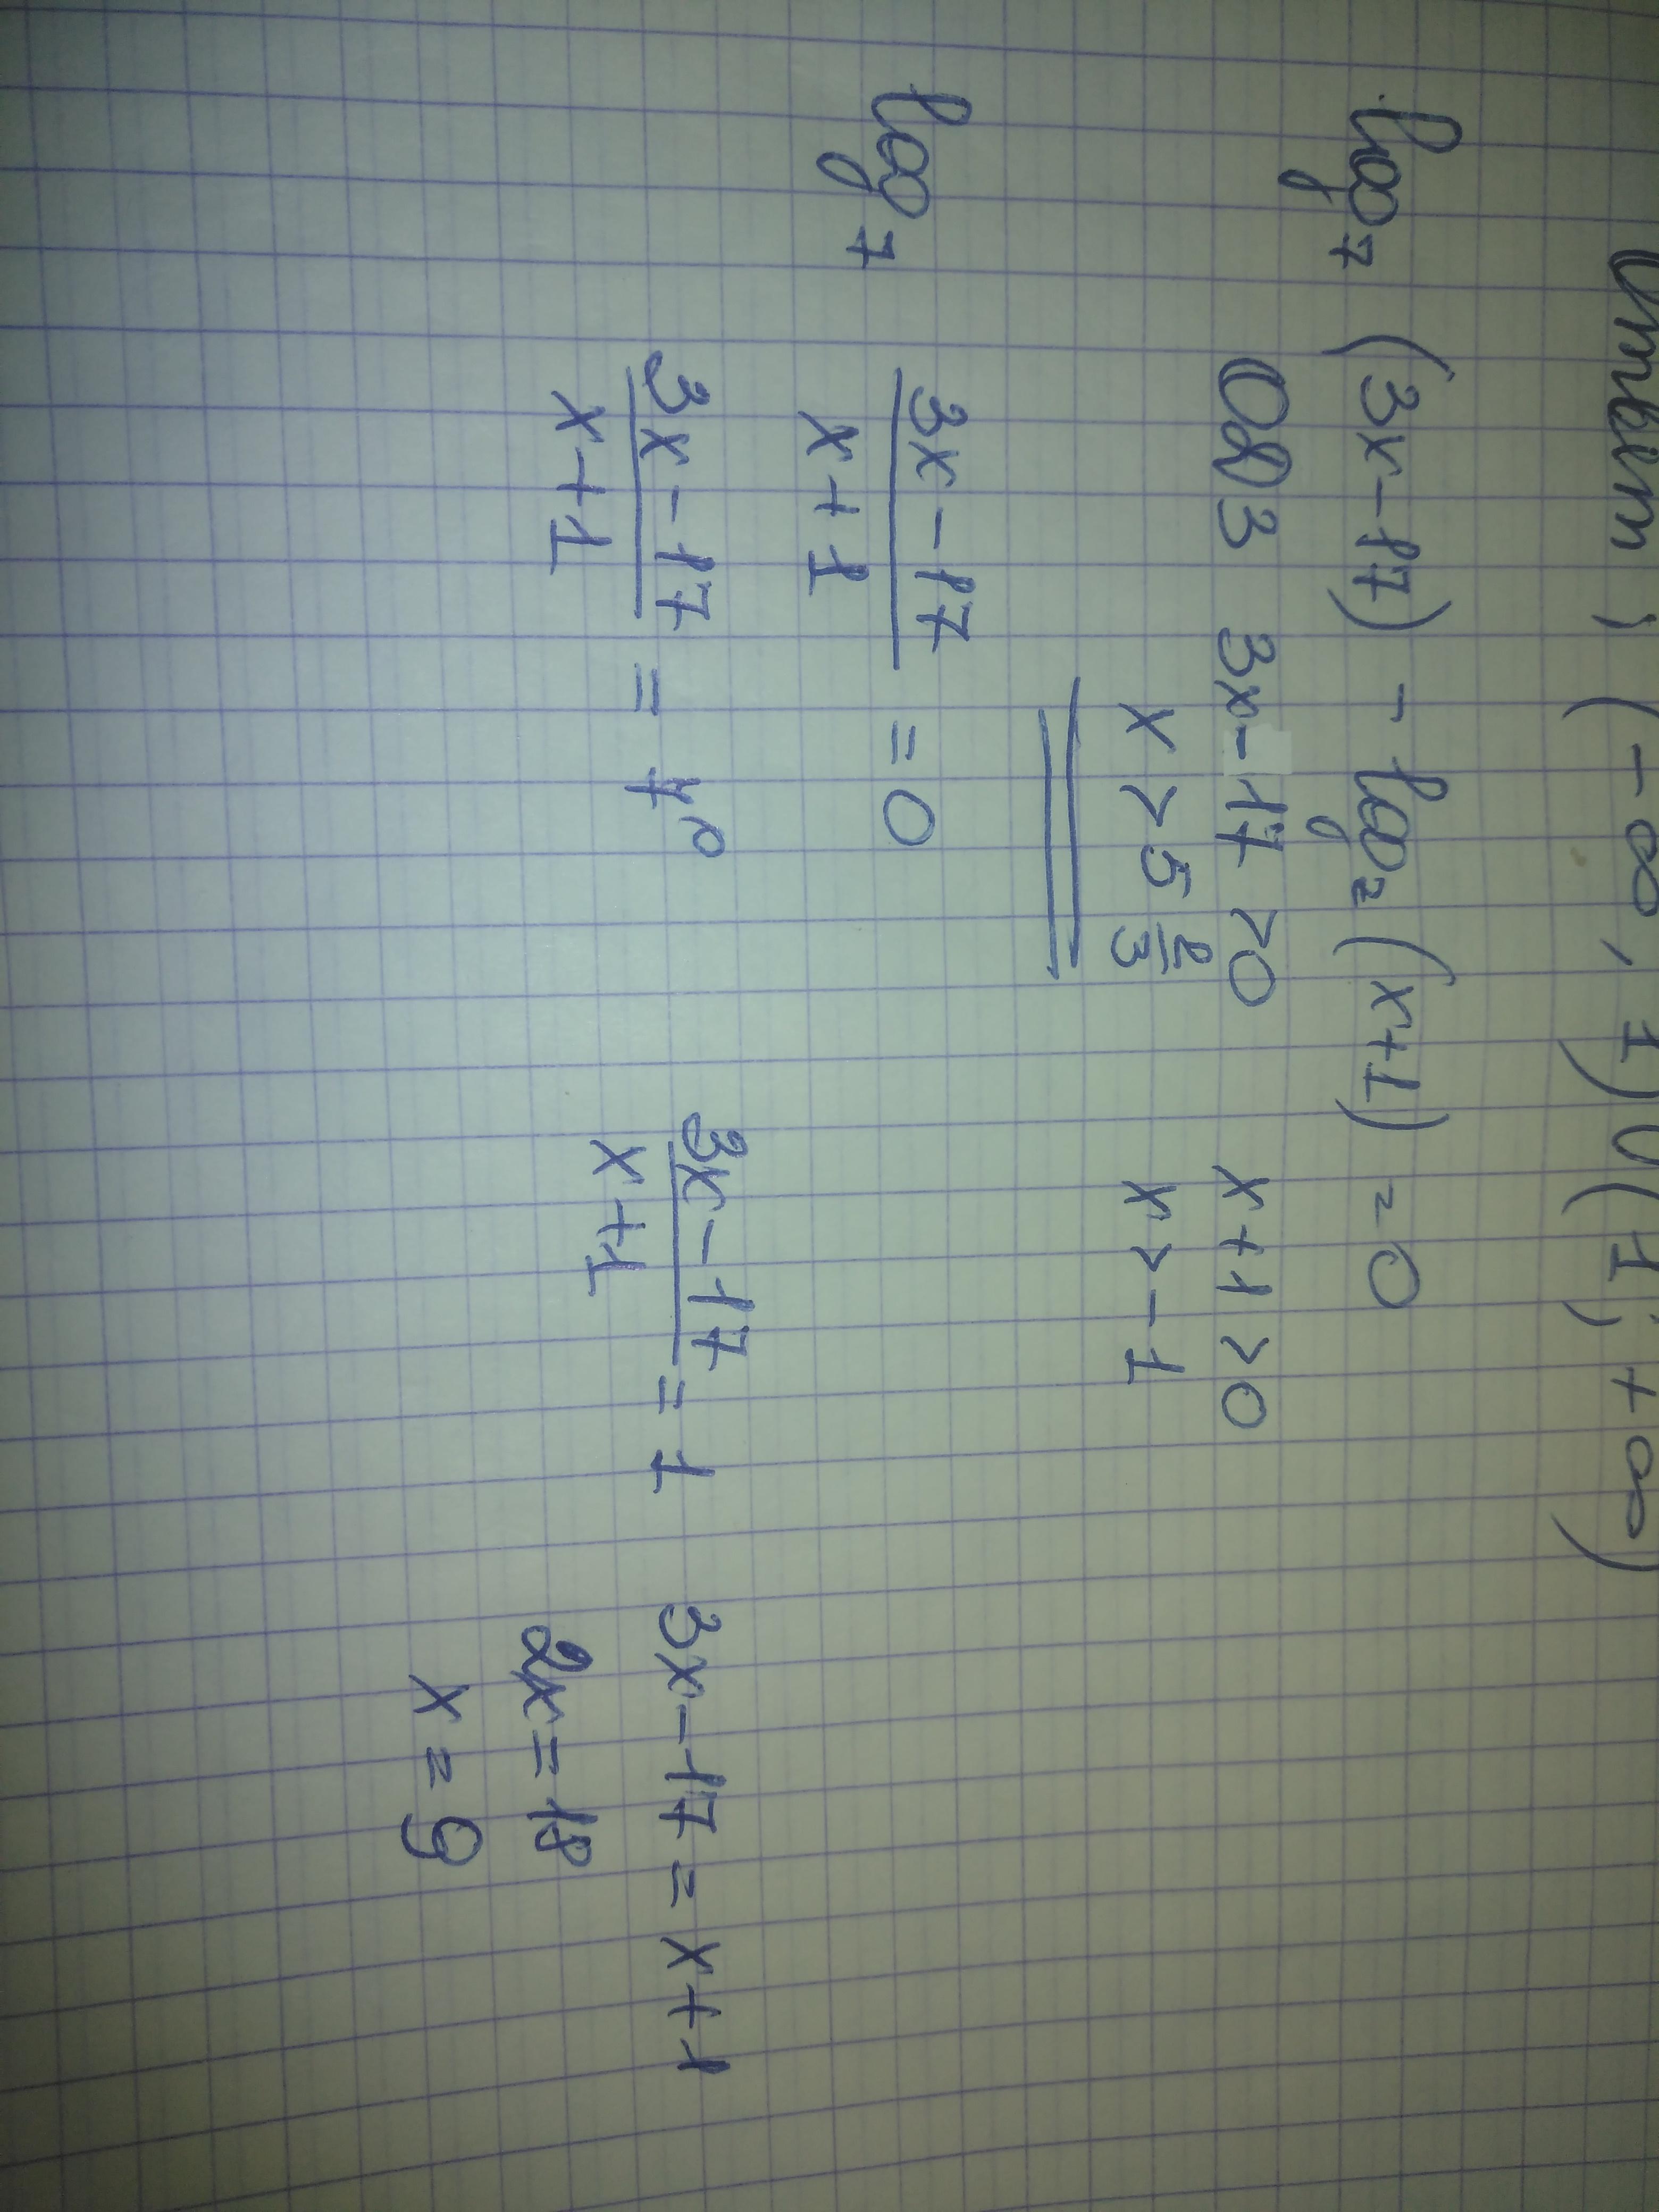 Ответ; (-∞, 1)U(1; +∞)
log₇ (3x-17) - log₂ (x+1) = 0
ОДЗ 3x-17 >0 x+1>0
x > 5 2/3 x>-1
log₇ (3x-17)/(x+1) = 0
(3x-17)/(x+1) = 7⁰ (3x-17)/(x+1) = 1 3x-17 = x+1
2x = 18
x = 9